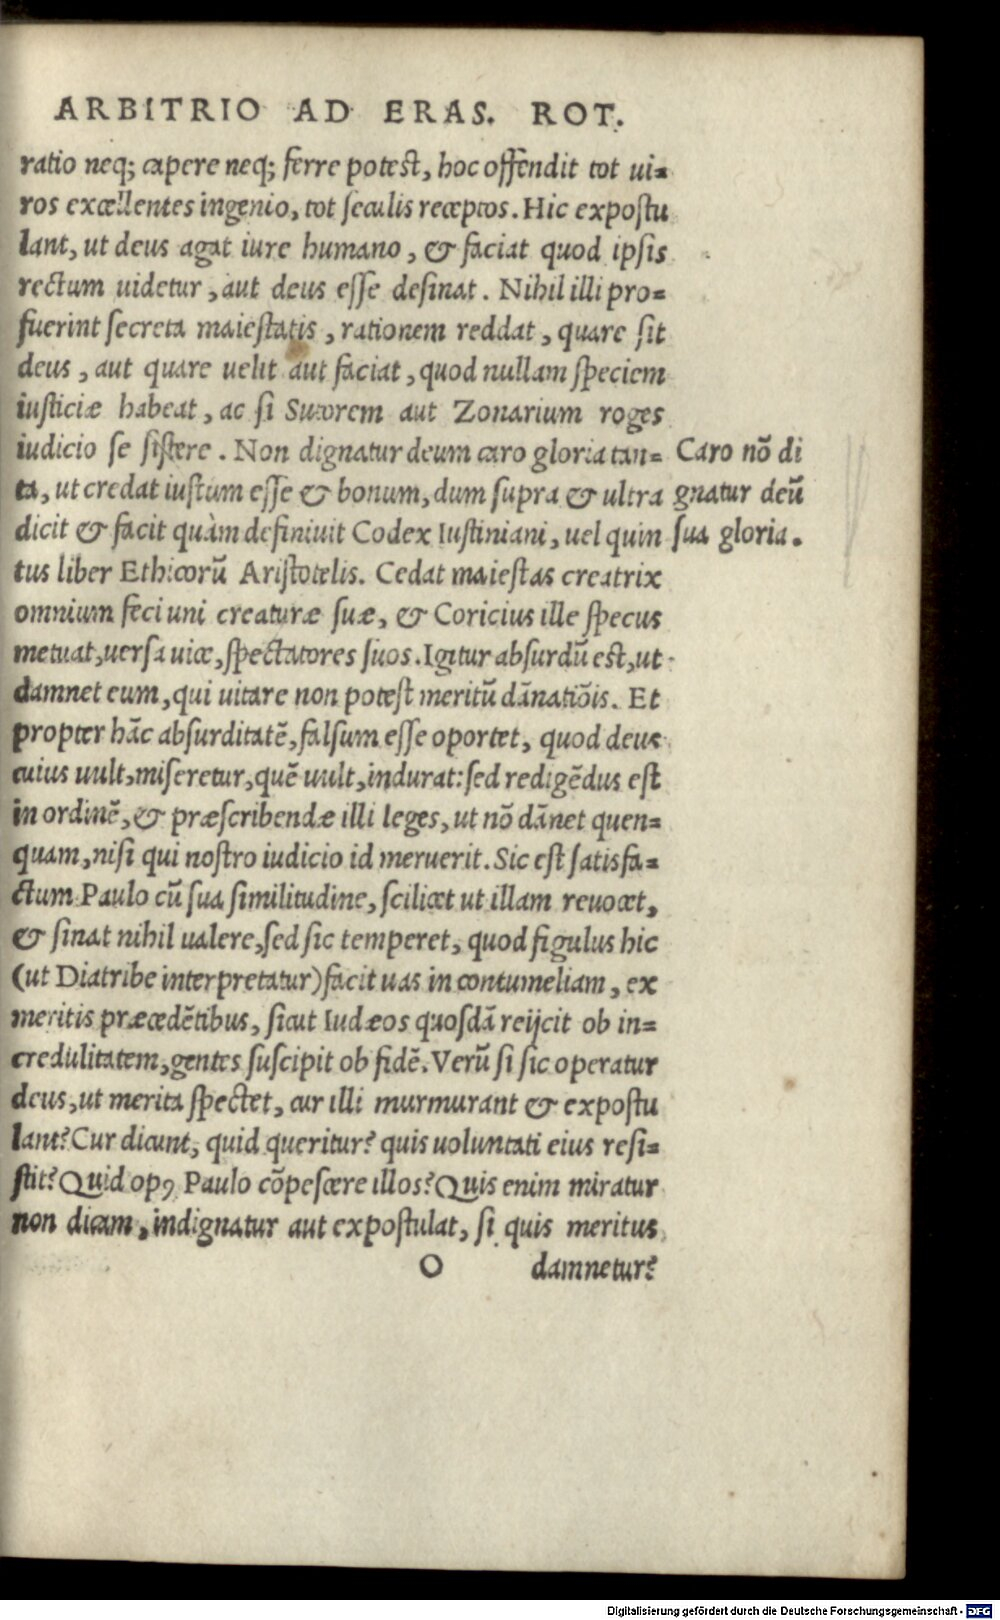 ARBITRIO AD ERAS. ROT.
ratio neq; capere neq; ferre potest, hoc offendit tot ui=
ros excellentes ingenio, tot seculis receptos. Hic expostu
lant, ut deus agat iure humano, & faciat quod ipsis
rectum uidetur, aut deus esse desinat. Nihil illi pro=
fuerint secreta maiestatis, rationem reddat, quare sit
deus, aut quare uelit aut faciat, quod nullam speciem
iusticiæ habeat, ac si Sutorem aut Zonarium roges
iudicio se sistere. Non dignatur deum caro gloria tan=
ta, ut credat iustum esse & bonum, dum supra & ultra
dicit & facit quàm definiuit Codex Iustiniani, uel quin
tus liber Ethicorũ Aristotelis. Cedat maiestas creatrix
omnium feci uni creaturæ suæ, & Coricius ille specus
metuat, uersa uice, spectatores suos. Igitur absurdũ est, ut
damnet eum, qui uitare non potest meritũ dãnatiõis. Et
propter hãc absurditatẽ, falsum esse oportet, quod deus
cuius uult, miseretur, quẽ uult, indurat: sed redigẽdus est
in ordinẽ, & præscribendæ illi leges, ut nõ dãnet quen=
quam, nisi qui nostro iudicio id meruerit. Sic est satisfa=
ctum Paulo cũ sua similitudine, scilicet ut illam reuocet,
& sinat nihil ualere, sed sic temperet, quod figulus hic
(ut Diatribe interpretatur) facit uas in contumeliam, ex
meritis præcedẽtibus, sicut Iudæos quosdã reijcit ob in=
credulitatem, gentes suscipit ob fidẽ. Verũ si sic operatur
deus, ut merita spectet, cur illi murmurant & expostu
lant? Cur dicunt, quid queritur? quis uoluntati eius resi=
stit? Quid opꝰ Paulo cõpescere illos? Quis enim miratur
non dicam, indignatur aut expostulat, si quis meritus
O damnetur?
Caro nõ di
gnatur deũ
sua gloria.
Digitalisierung gefördert durch die Deutsche Forschungsgemeinschaft - DFG